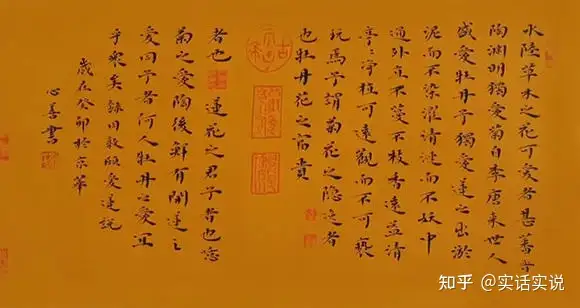 水陸草木之花可愛者甚蕃晉
陶淵明獨愛菊自李唐来世人
盛愛牡丹予獨愛蓮之出淤
泥而不染濯清漣而不妖中
通外直不蔓不枝香遠益清
亭亭净植可遠觀而不可褻
玩焉予謂菊花之隐逸者
也牡丹花之富貴
者也蓮花之君子者也噫
菊之愛陶後鮮有聞蓮之
愛同予者何人牡丹之愛宜
乎衆矣錄周敦頤愛蓮説
歲在癸卯於京華
心善書
知乎 @实话实说